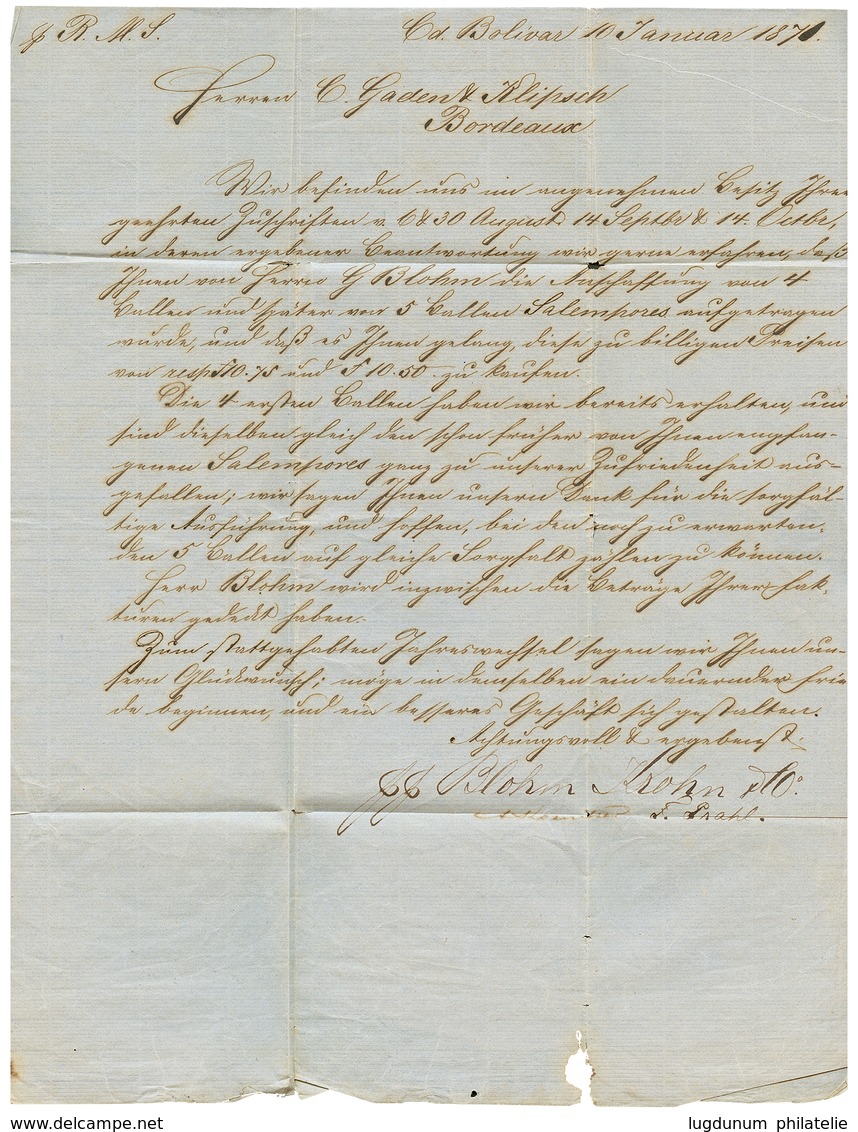 pr R. M. S.
Cd. Bolivar 10 Januar 1871.
Herren C. Gaden & Klipsch
Bordeaux
Wir befinden uns im angenehmen Besitz Ihrer
geehrten Zuschriften v. 6 & 30 August 14 Septbr & 14. Octbr,
in deren ergebener Beantwortung wir gerne erfahren, daß
Ihnen von Herrn G Blohm die Anschaffung von 4
Ballen und später von 5 Ballen Salempores aufgetragen
wurde, und daß es Ihnen gelang, diese zu billigen Preisen
von resp f 10.75 und F 10.50 zu kaufen.
Die 4 ersten Ballen haben wir bereits erhalten, und
sind dieselben gleich den schon früher von Ihnen empfan-
genen Salempores ganz zu unserer Zufriedenheit aus-
gefallen; wir sagen Ihnen unsern Dank für die sorgfäl-
tige Ausführung, und hoffen, bei den noch zu erwarten-
den 5 Ballen auf gleiche Sorgfalt zählen zu können.
Herr Blohm wird inzwischen die Beträge Ihrer Fak-
turen gedeckt haben.
Zum stattgehabten Jahreswechsel sagen wir Ihnen un-
sern Glückwunsch; möge in demselben ein dauernder Frie-
de beginnen, und ein besseres Geschäft sich gestalten.
Achtungsvoll & ergebenst
pp Blohm Krohn & Co.
F. Prahl.
delcampe.net
lugdunum philatelie